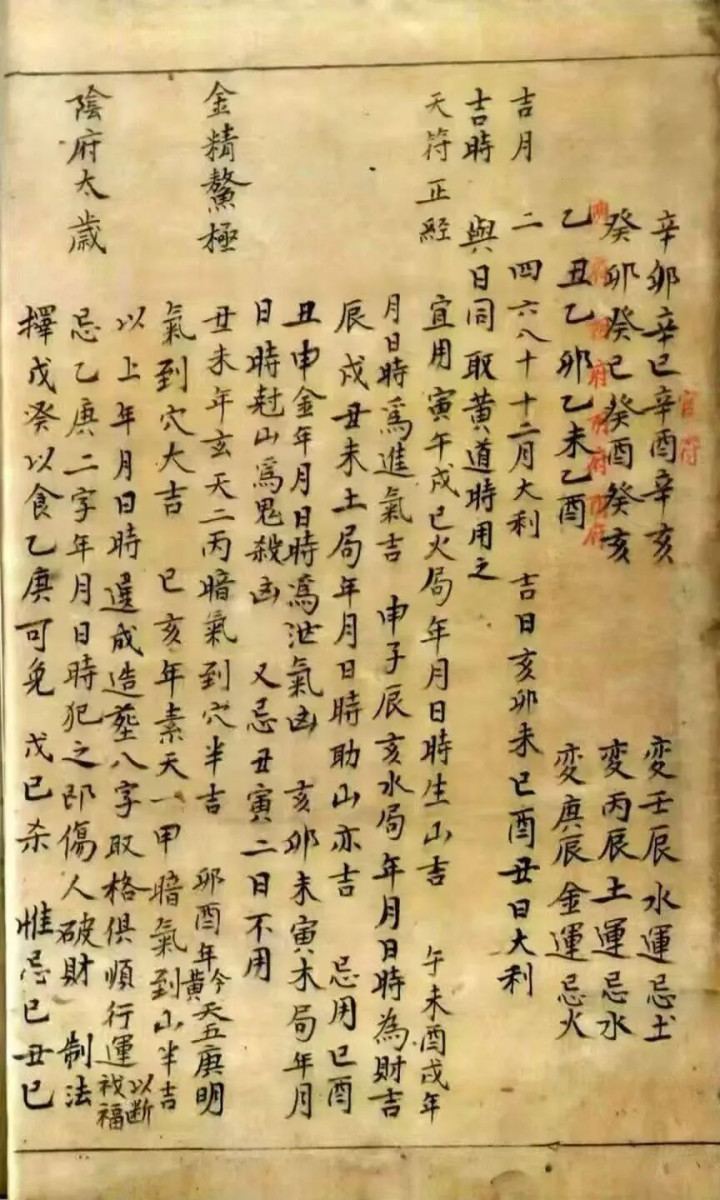 辛卯辛巳辛酉辛亥　變壬辰水運忌土
官符
癸卯癸巳癸酉癸亥　變丙辰土運忌水
乙丑乙卯乙未乙酉　變庚辰金運忌火
吉月　二四六八十十二月大利　吉日亥卯未巳酉丑日大利
吉時　與日同取黃道時用之
天符正経　宜用寅午戌巳火局年月日時生山吉　午未酉戌年
月日時爲進氣吉　申子辰亥水局年月日時為財吉
辰戌丑未土局年月日時助山亦吉　忌用巳酉
丑申金年月日時爲泄氣凶　亥卯未寅木局年月
日時尅山爲鬼殺凶　又忌丑寅二日不用
金精鰲極　丑未年玄天二丙暗氣到穴半吉　卯酉年今黃天五庚明
氣到穴大吉　巳亥年素天一甲暗氣到山半吉
以上年月日時選成造葬八字取格俱順行運以断禍福
陰府太歲　忌乙庚二字年月日時犯之即傷人破財　制法
擇戊癸以食乙庚可免　戊巳杀　惟忌巳丑巳